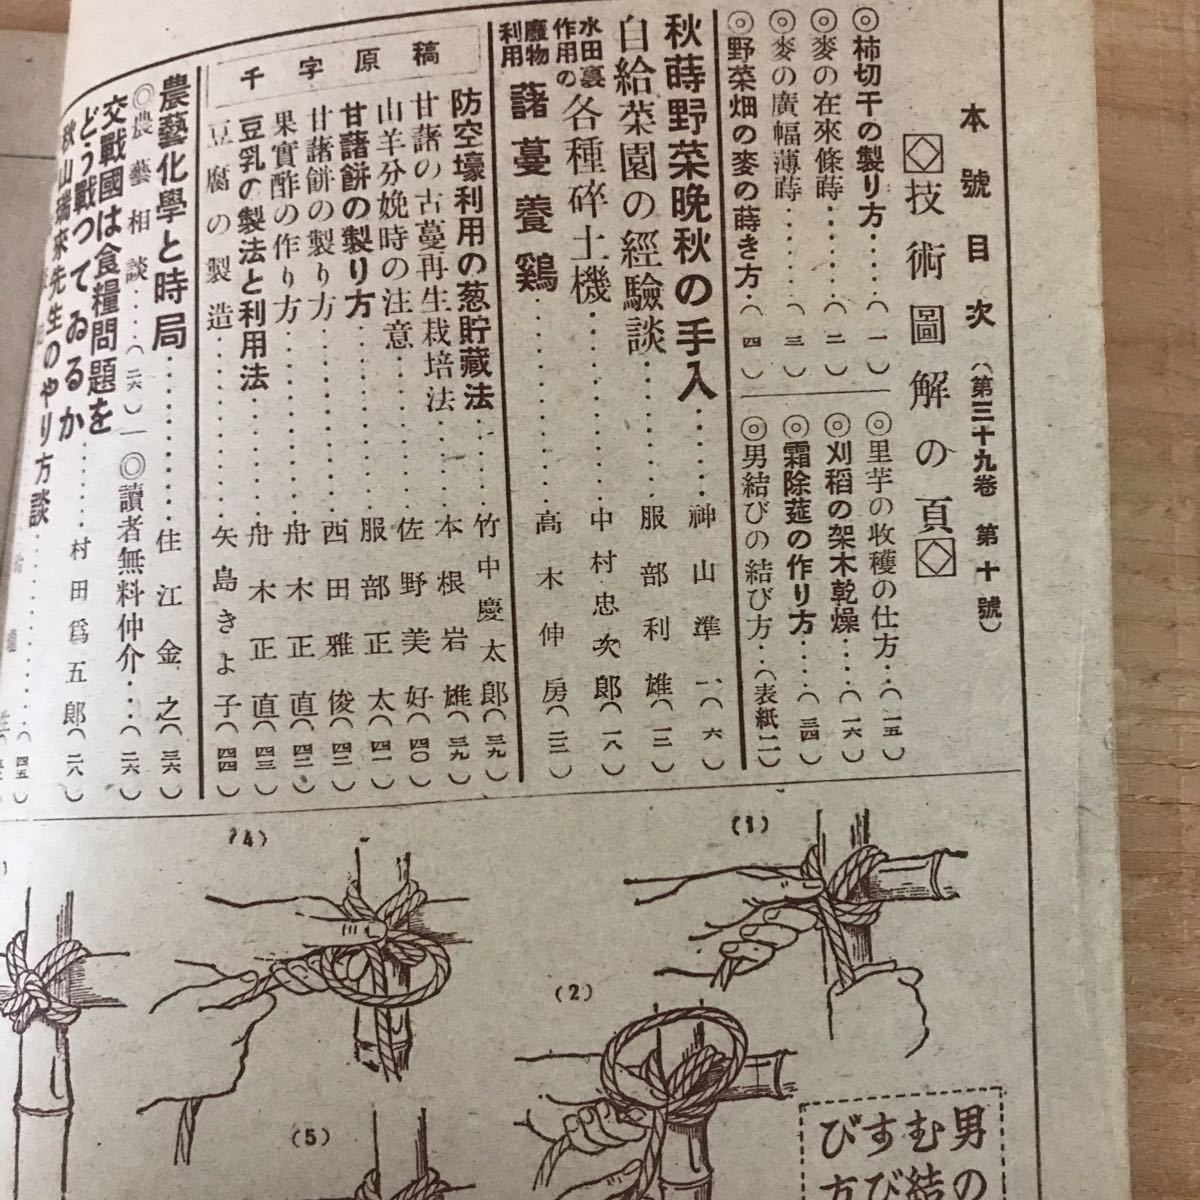 本號目次（第三十九卷 第十號）
技術圖解の頁
◎柿切干の製り方……（一）
◎麥の在來條蒔……（二）
◎麥の廣幅薄蒔……（三）
◎野菜畑の麥の蒔き方…（四）
◎里芋の收穫の仕方…（一五）
◎刈稻の架木乾燥…（一六）
◎霜除莚の作り方…（三四）
◎男結びの結び方…（表紙二）
秋蒔野菜晩秋の手入……神山準一（六）
自給菜園の經驗談……服部利雄（一二）
水田裏作用の各種碎土機……中村忠次郎（一八）
廢物利用 藷蔓養鷄……高木伸房（二三）
千字原稿
防空壕利用の葱貯藏法……竹中慶太郎（三九）
甘藷の古蔓再生栽培法……本根岩雄（三九）
山羊分娩時の注意……佐野美好（四〇）
甘藷餅の製り方……服部正太（四一）
甘藷餅の製り方……西田雅俊（四二）
果實酢の作り方……舟木正直（四二）
豆乳の製法と利用法……舟木正直（四三）
豆腐の製造……矢島きよ子（四四）
農藝化學と時局……住江金之（三六）
◎農藝相談……（二六）
◎讀者無料仲介…（二六）
交戰國は食糧問題をどう戰つてゐるか……村田爲五郎（二八）
先生のやり方談……（四五）
(1)
(2)
(4)
(5)
男の
むす
び方